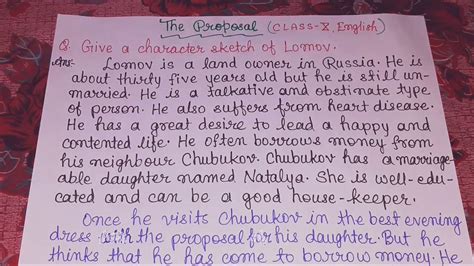 The Proposal (CLASS-X, English)
Q. Give a character sketch of Lomov.
Ans- Lomov is a land owner in Russia. He is
about thirty five years old but he is still un-
married. He is a talkative and obstinate type
of person. He also suffers from heart disease.
He has a great desire to lead a happy and
contented life. He often borrows money from
his neighbour Chubukov. Chubukov has a marriage-
able daughter named Natalya. She is well-edu-
cated and can be a good house-keeper.
Once he visits Chubukov in the best evening
dress with the proposal for his daughter. But he
thinks that he has come to borrow money. He